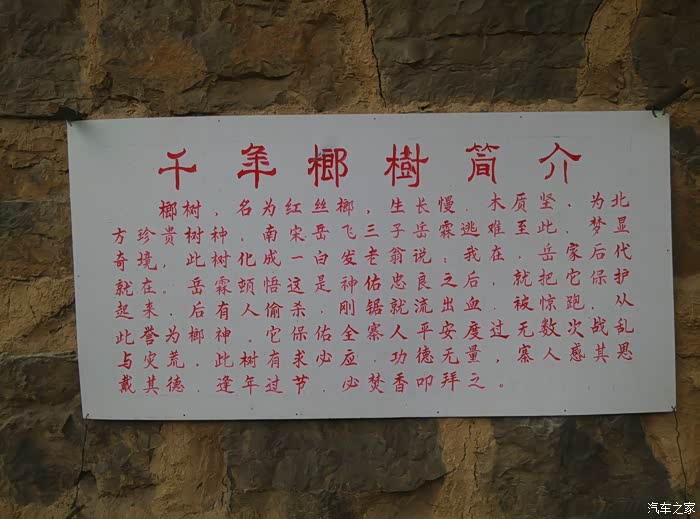 千年榔樹简介
榔树，名为红丝榔，生长慢．木质坚．为北
方珍贵树种．南宋岳飞三子岳霖逃难至此．梦显
奇境，此树化成一白发老翁说：我在，岳家后代
就在。岳霖顿悟这是神佑忠良之后，就把它保护
起来．后有人偷杀．刚锯就流出血．被惊跑．从
此誉为榔神．它保佑全寨人平安度过无数次战乱
与灾荒．此树有求必应．功德无量，寨人感其恩
戴其德．逢年过节．必焚香叩拜之。
汽车之家